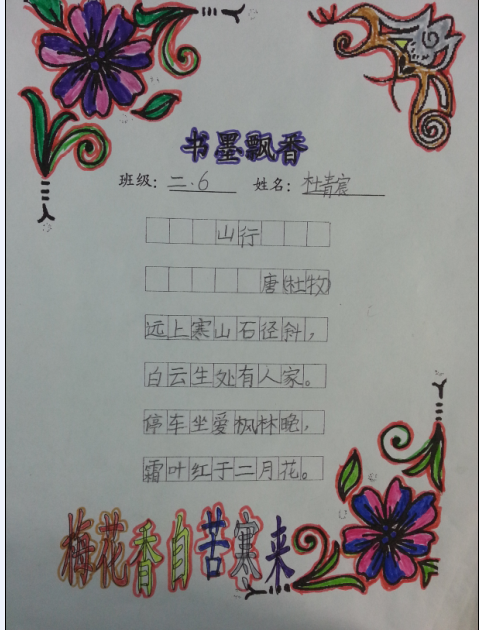 书墨飘香
班级：二.6 姓名：杜青宸
山行
唐(杜牧)
远上寒山石径斜，
白云生处有人家。
停车坐爱枫林晚，
霜叶红于二月花。
梅花香自苦寒来